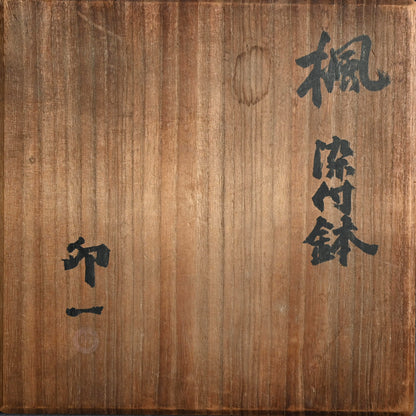 楓
染付鉢
卯一